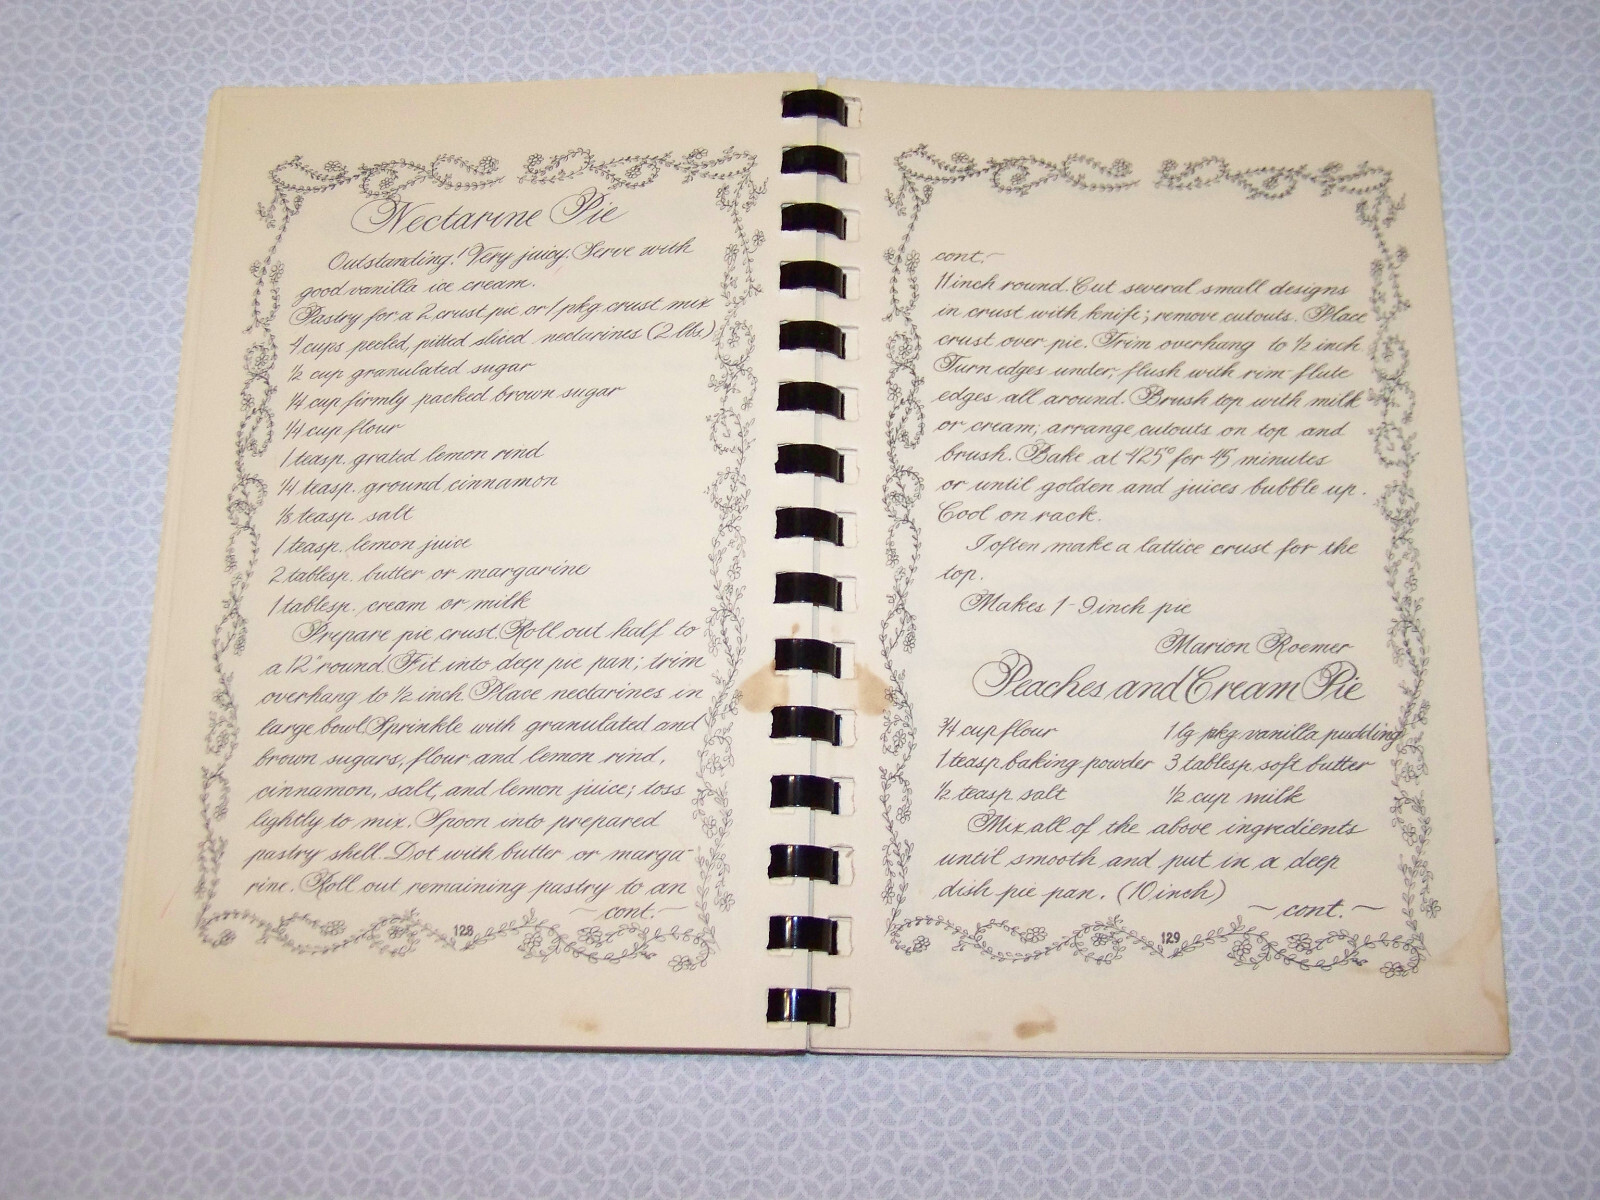 Nectarine Pie
Outstanding! Very juicy. Serve with
good vanilla ice cream.
Pastry for a 2 crust pie or 1 pkg. crust mix
4 cups peeled, pitted sliced nectarines (2 lbs)
½ cup granulated sugar
¼ cup firmly packed brown sugar
¼ cup flour
1 teasp. grated lemon rind
¼ teasp. ground cinnamon
⅛ teasp. salt
1 teasp. lemon juice
2 tablesp. butter or margarine
1 tablesp. cream or milk
Prepare pie crust. Roll out half to
a 12" round. Fit into deep pie pan; trim
overhang to ½ inch. Place nectarines in
large bowl. Sprinkle with granulated and
brown sugars, flour and lemon rind,
cinnamon, salt, and lemon juice; toss
lightly to mix. Spoon into prepared
pastry shell. Dot with butter or marga-
rine. Roll out remaining pastry to an
~ cont. ~
128
cont. ~
11 inch round. Cut several small designs
in crust with knife; remove cutouts. Place
crust over pie. Trim overhang to ½ inch
Turn edges under, flush with rim flute
edges all around. Brush top with milk
or cream; arrange cutouts on top and
brush. Bake at 425° for 45 minutes
or until golden and juices bubble up.
Cool on rack.
I often make a lattice crust for the
top.
Makes 1-9 inch pie
Marion Roemer
Peaches and Cream Pie
¾ cup flour 1 lg pkg vanilla pudding
1 teasp baking powder 3 tablesp soft butter
½ teasp salt ½ cup milk
Mix all of the above ingredients
until smooth and put in a deep
dish pie pan. (10 inch)
~ cont. ~
129